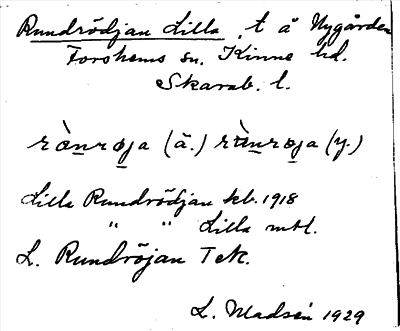 Rundrödjan Lilla, t å Nygården
Forshems sn. Kinne hd.
Skarab. l.
rànrøja (ä.) rànrøja (y.)
Lilla Rundrödjan kb. 1918
" " Lilla mtl.
L. Rundröjan Tek.
L. Madsén 1929